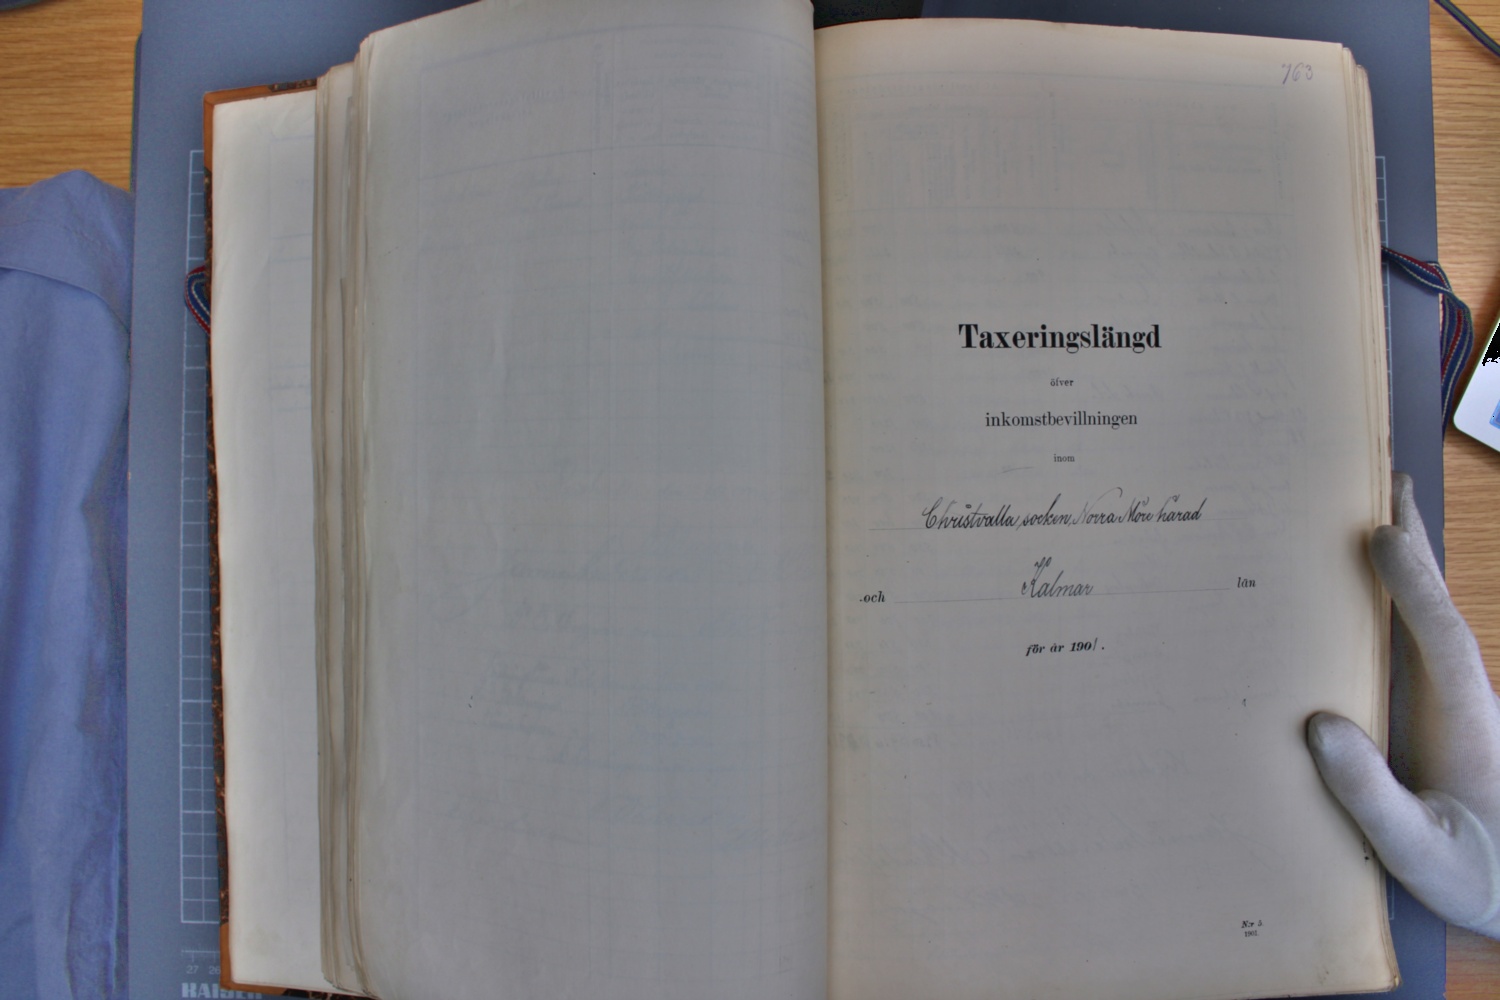 763
Taxeringslängd
öfver
inkomstbevillningen
inom
Christvalla socken, Norra Möre härad
och Kalmar län
för år 1901.
N:r 5.
1901
27 26
KAISER